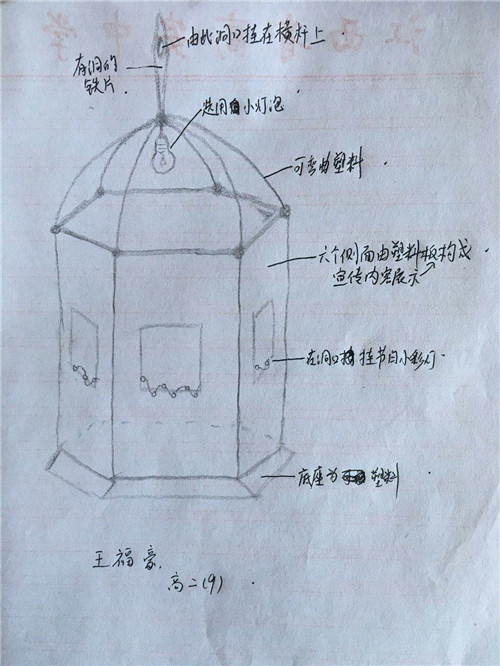 由此洞口挂在横杆上
有洞的
铁片
选用小灯泡
可弯曲塑料
六个侧面由塑料板构成
宣传内容展示
在洞口挂节日小彩灯
底座为塑料
王福豪
高二(9)